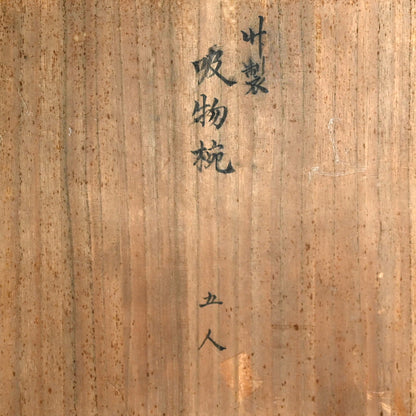 製
吸物椀
五人